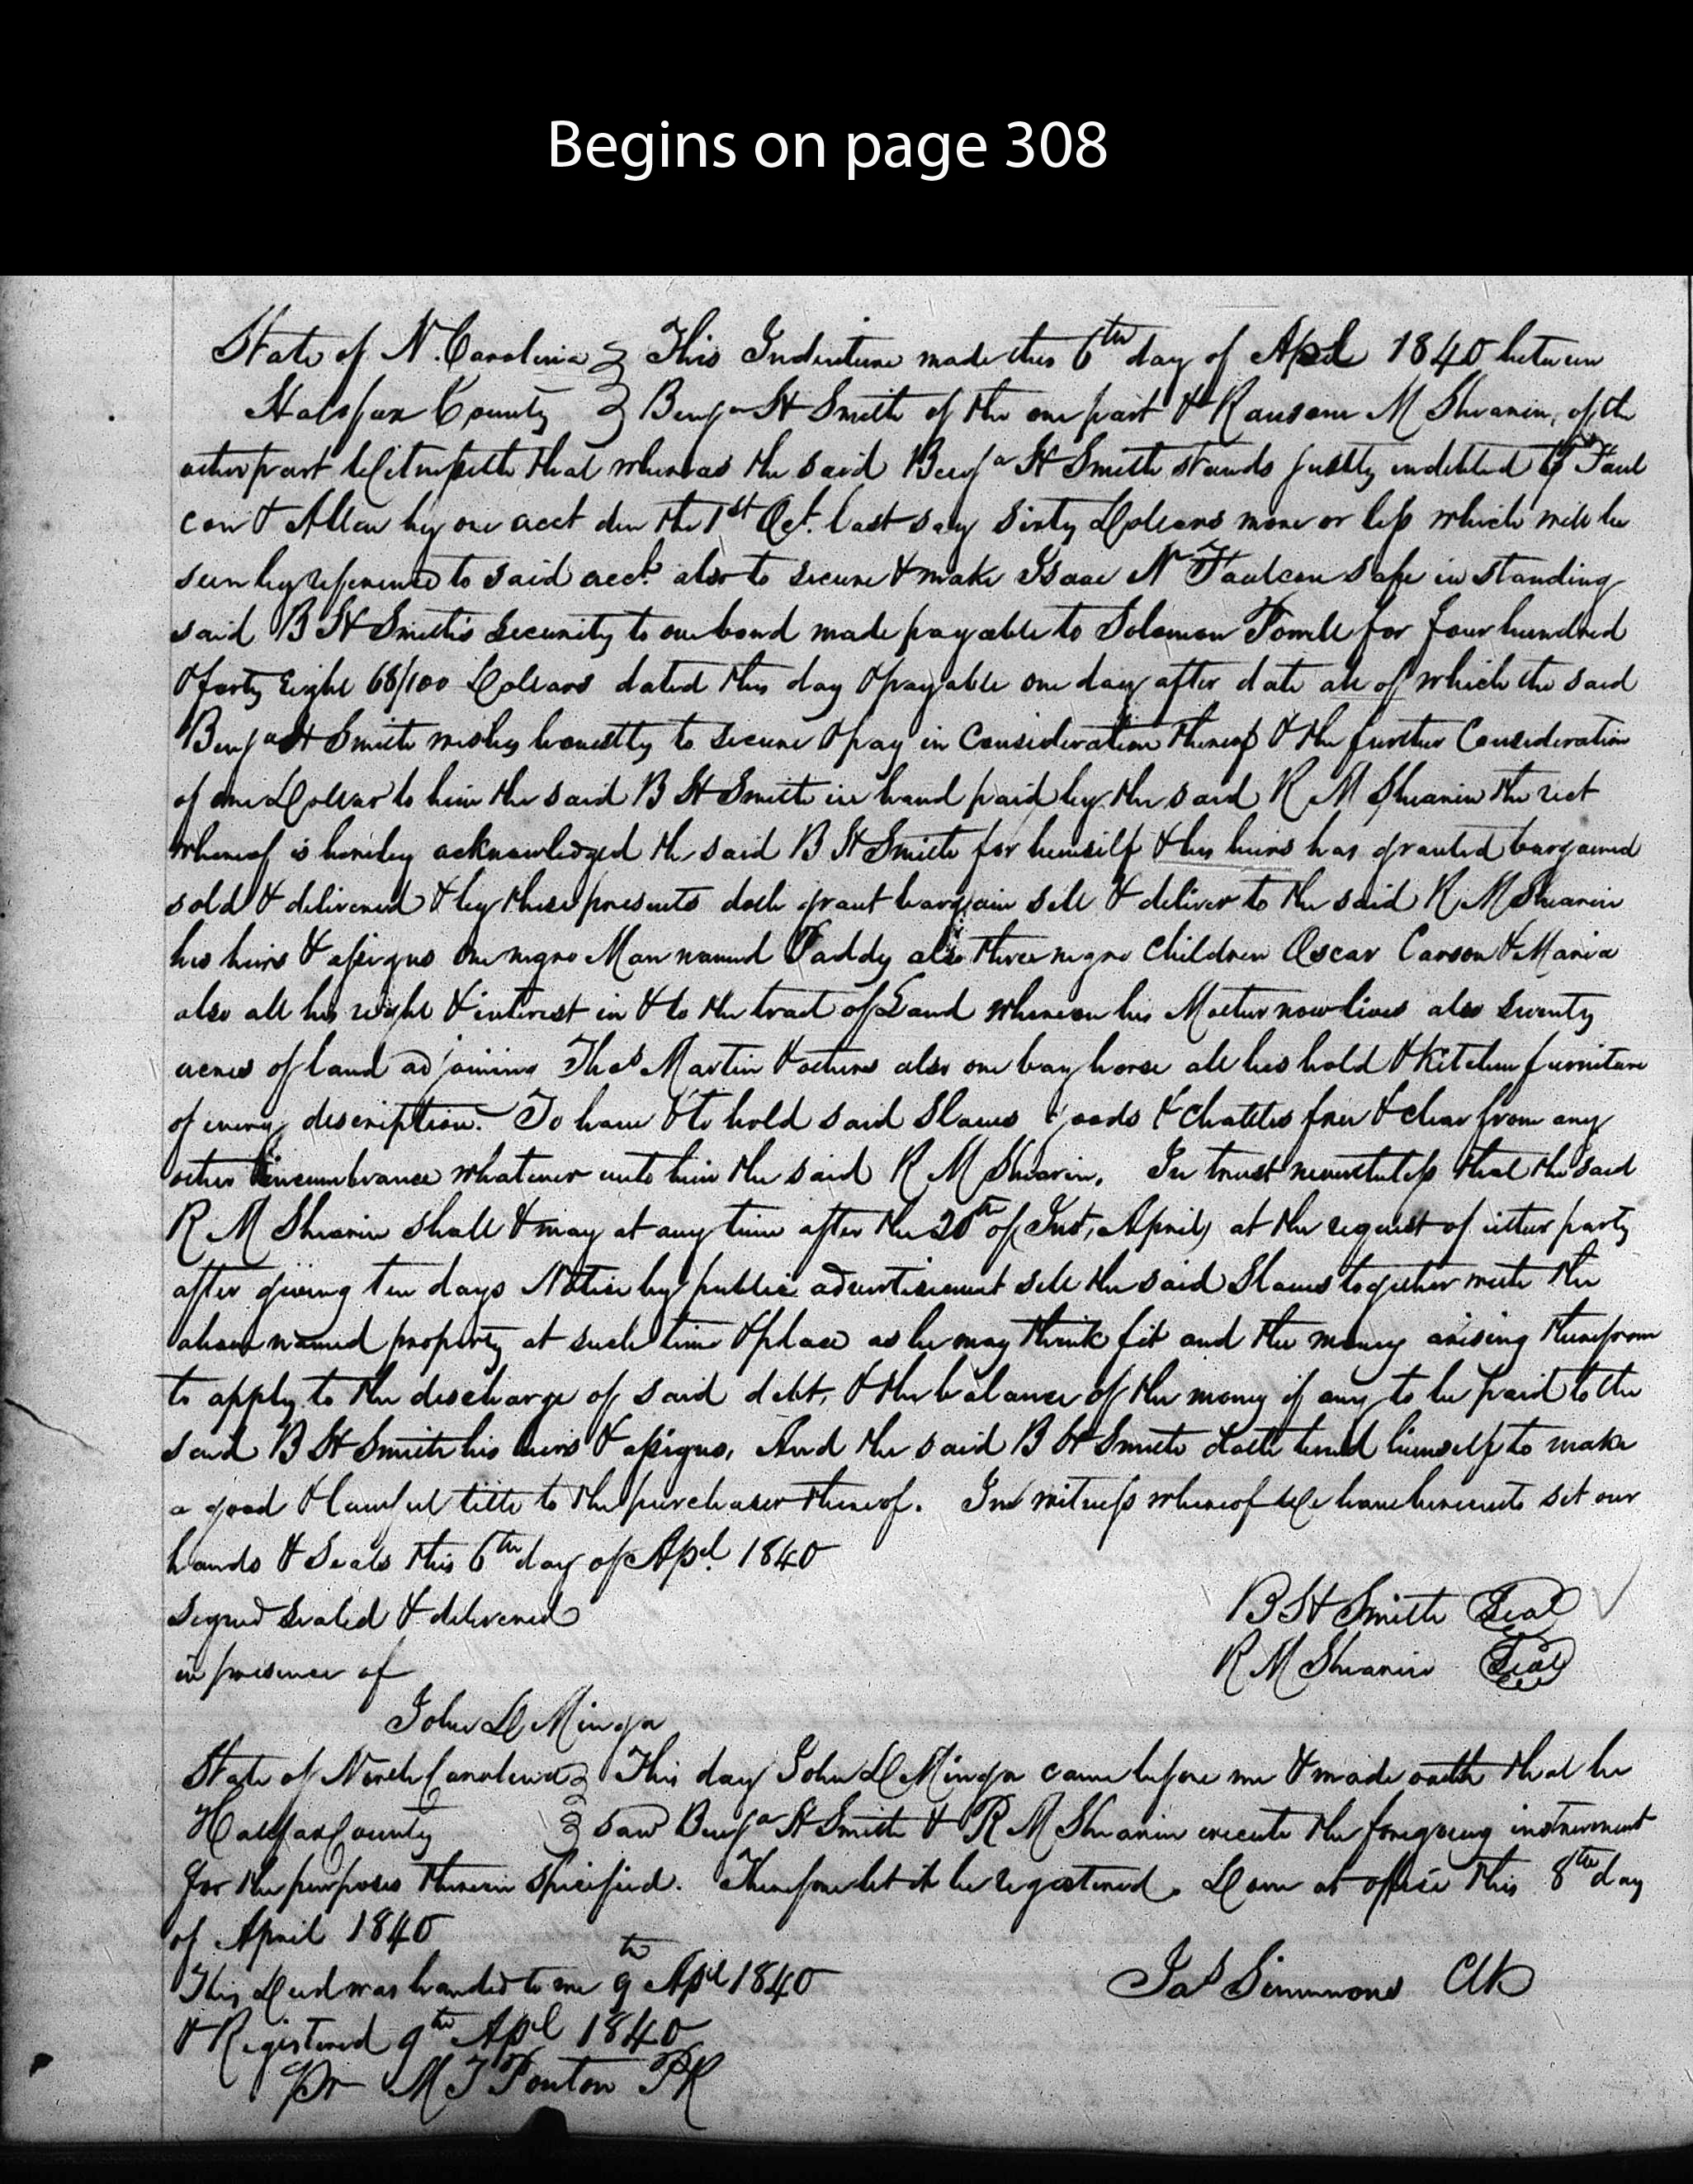 Begins on page 308
State of N. Carolina } This Indenture made this 6th day of Apl 1840 between
Halifax County } Benja H Smith of the one part & Ransom M Shearin, of the
other part Witnesseth that whereas the said Benja H Smith stands justly indebted to Faul
con & Allen by one acct due the 1st Oct. last say Sixty Dollars more or less which will be
seen by reference to said acct. also to secure & make Isaac N Faulcon safe in standing
said B H Smith's Security to one bond made payable to Solomon Powell for four hundred
& forty Eight 68/100 Dollars dated this day & payable one day after date all of which the said
Benja H Smith wishes honestly to secure & pay in Consideration thereof & the further Consideration
of one Dollar to him the said B H Smith in hand paid by the said R M Shearin the rect
whereof is hereby acknowledged the said B H Smith for himself & his heirs has granted bargained
sold & delivered & by these presents doth grant bargain sell & deliver to the said R M Shearin
his heirs & assigns one negro Man named Paddy also three negro children Oscar Carson & Maria
also all his right & interest in & to the tract of Land whereon his Mother now lives also seventy
acres of land adjoining Thos Martin & others also one bay horse all his hold & Kitchen furniture
of every description. To have & to hold said Slaves goods & chattles free & clear from any
other incumbrance whatever unto him the said R M Shearin. In trust nevertheless that the said
R M Shearin shall & may at any time after the 20th of Inst, April) at the request of either party
after giving ten days Notice by public advertisement sell the said Slaves together with the
above named property at such time & place as he may think fit and the money arising therefrom
to apply to the discharge of said debt, & the balance of the money if any to be paid to the
said B H Smith his heirs & assigns, And the said B H Smith doth bind himself to make
a good & lawful title to the purchaser thereof. In witness whereof We have hereunto set our
hands & Seals this 6th day of Apl. 1840
Signed Sealed & delivered
B H Smith Seal
in presence of
R M Shearin Seal
John D Minga
State of North Carolina } This day John D Minga came before me & made oath that he
Halifax County } saw Benja H Smith & R M Shearin execute the foregoing instrument
for the purposes therein specified. Therefore let it be registered. Done at office this 8th day
of April 1840
This Deed was handed to me 9th Apl 1840
Jas Simmons Clk
& Registered 9th Apl 1840
Pr M T Ponton PR